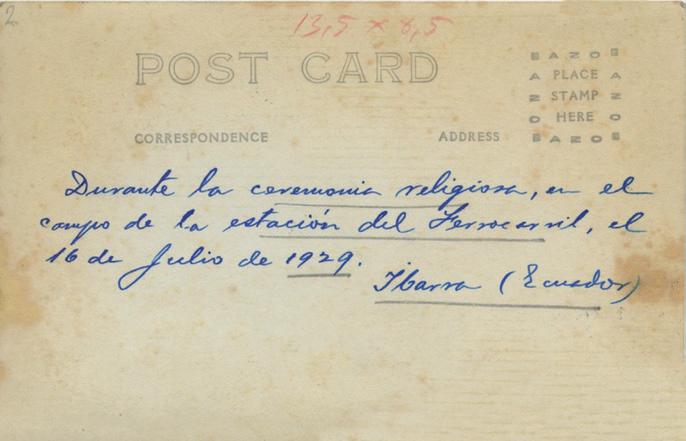 2
13,5 x 8,5
POST CARD
CORRESPONDENCE
ADDRESS
AZO
PLACE
STAMP
HERE
AZO
Durante la ceremonia religiosa, en el
campo de la estación del Ferrocarril, el
16 de Julio de 1929.
Ibarra (Ecuador)